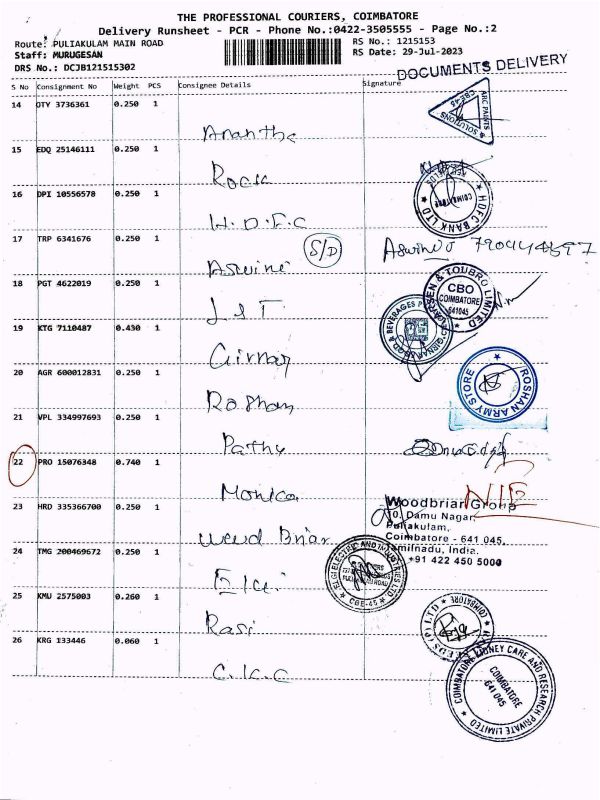 THE PROFESSIONAL COURIERS, COIMBATORE
Delivery Runsheet - PCR - Phone No.:0422-3505555 - Page No.:2
Route: PULIAKULAM MAIN ROAD
Staff: MURUGESAN
DRS No.: DCJB121515302
RS No.: 1215153
RS Date: 29-Jul-2023
DOCUMENTS DELIVERY
S No Consignment No Weight PCS Consignee Details Signature
14 OTY 3736361 0.250 1
Anantha
ARC PAINTS SOLUTIONS CBE-45
15 EDQ 25146111 0.250 1
Rock
16 DPI 10556578 0.250 1
H.D.F.C
HDFC BANK LTD COIMBATORE
17 TRP 6341676 0.250 1
Aswini S/D
18 PGT 4622019 0.250 1
L&T
LARSEN & TOUBRO LIMITED CBO COIMBATORE 641045
19 KTG 7110487 0.430 1
Girnar
20 AGR 600012831 0.250 1
Roshan
ROSHAN ARMY STORE
21 VPL 334997693 0.250 1
Pathy
22 PRO 15076348 0.740 1
Monica
23 HRD 335366700 0.250 1
Wood Briar
Woodbrian Group
Damu Nagar,
Puliakulam,
Coimbatore - 641 045,
Tamilnadu, India.
+91 422 450 5000
24 TMG 200469672 0.250 1
Elgi
ELGI ELECTRIC AND INDUSTRIES LTD CBE-45
25 KMU 2575003 0.260 1
Rasi
26 KRG 133446 0.060 1
C.K.C
COIMBATORE KIDNEY CARE AND RESEARCH PRIVATE LIMITED COIMBATORE 641 045